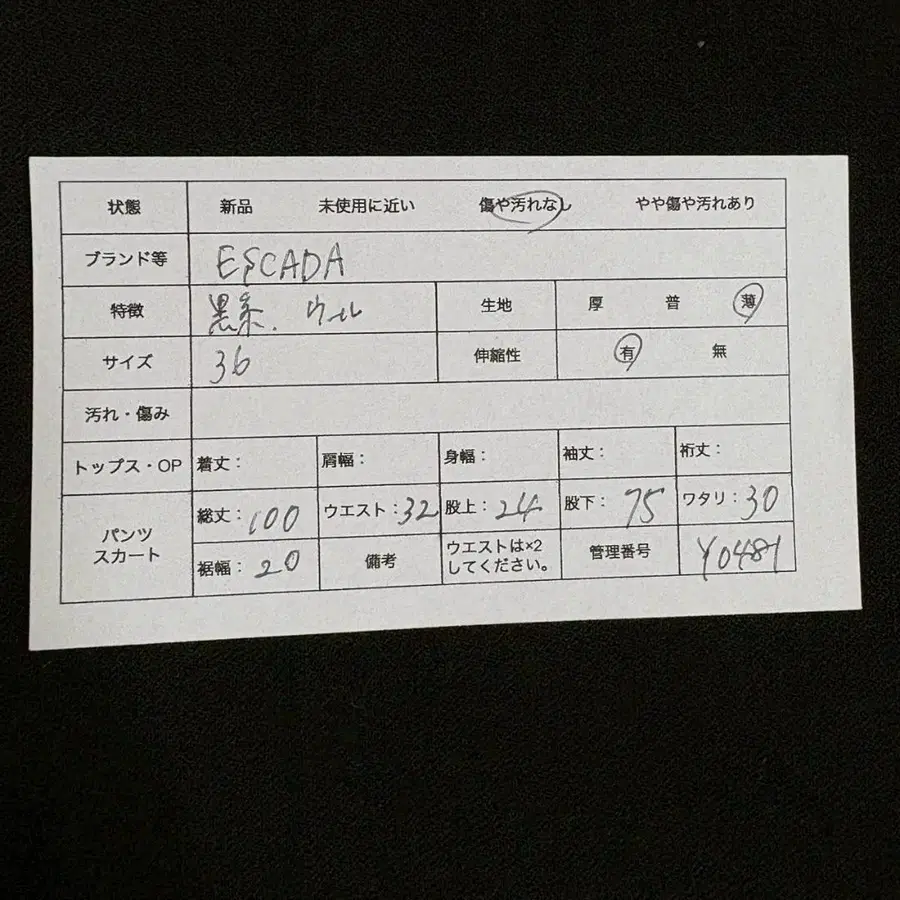 状態 新品 未使用に近い 傷や汚れなし やや傷や汚れあり
ブランド等 ESCADA
特徴 黒系. ウール 生地 厚 普 薄
サイズ 36 伸縮性 有 無
汚れ・傷み
トップス・OP 着丈: 肩幅: 身幅: 袖丈: 裄丈:
パンツ スカート 総丈: 100 ウエスト: 32 股上: 24 股下: 75 ワタリ: 30
裾幅: 20 備考 ウエストは×2 してください。 管理番号 Y0481